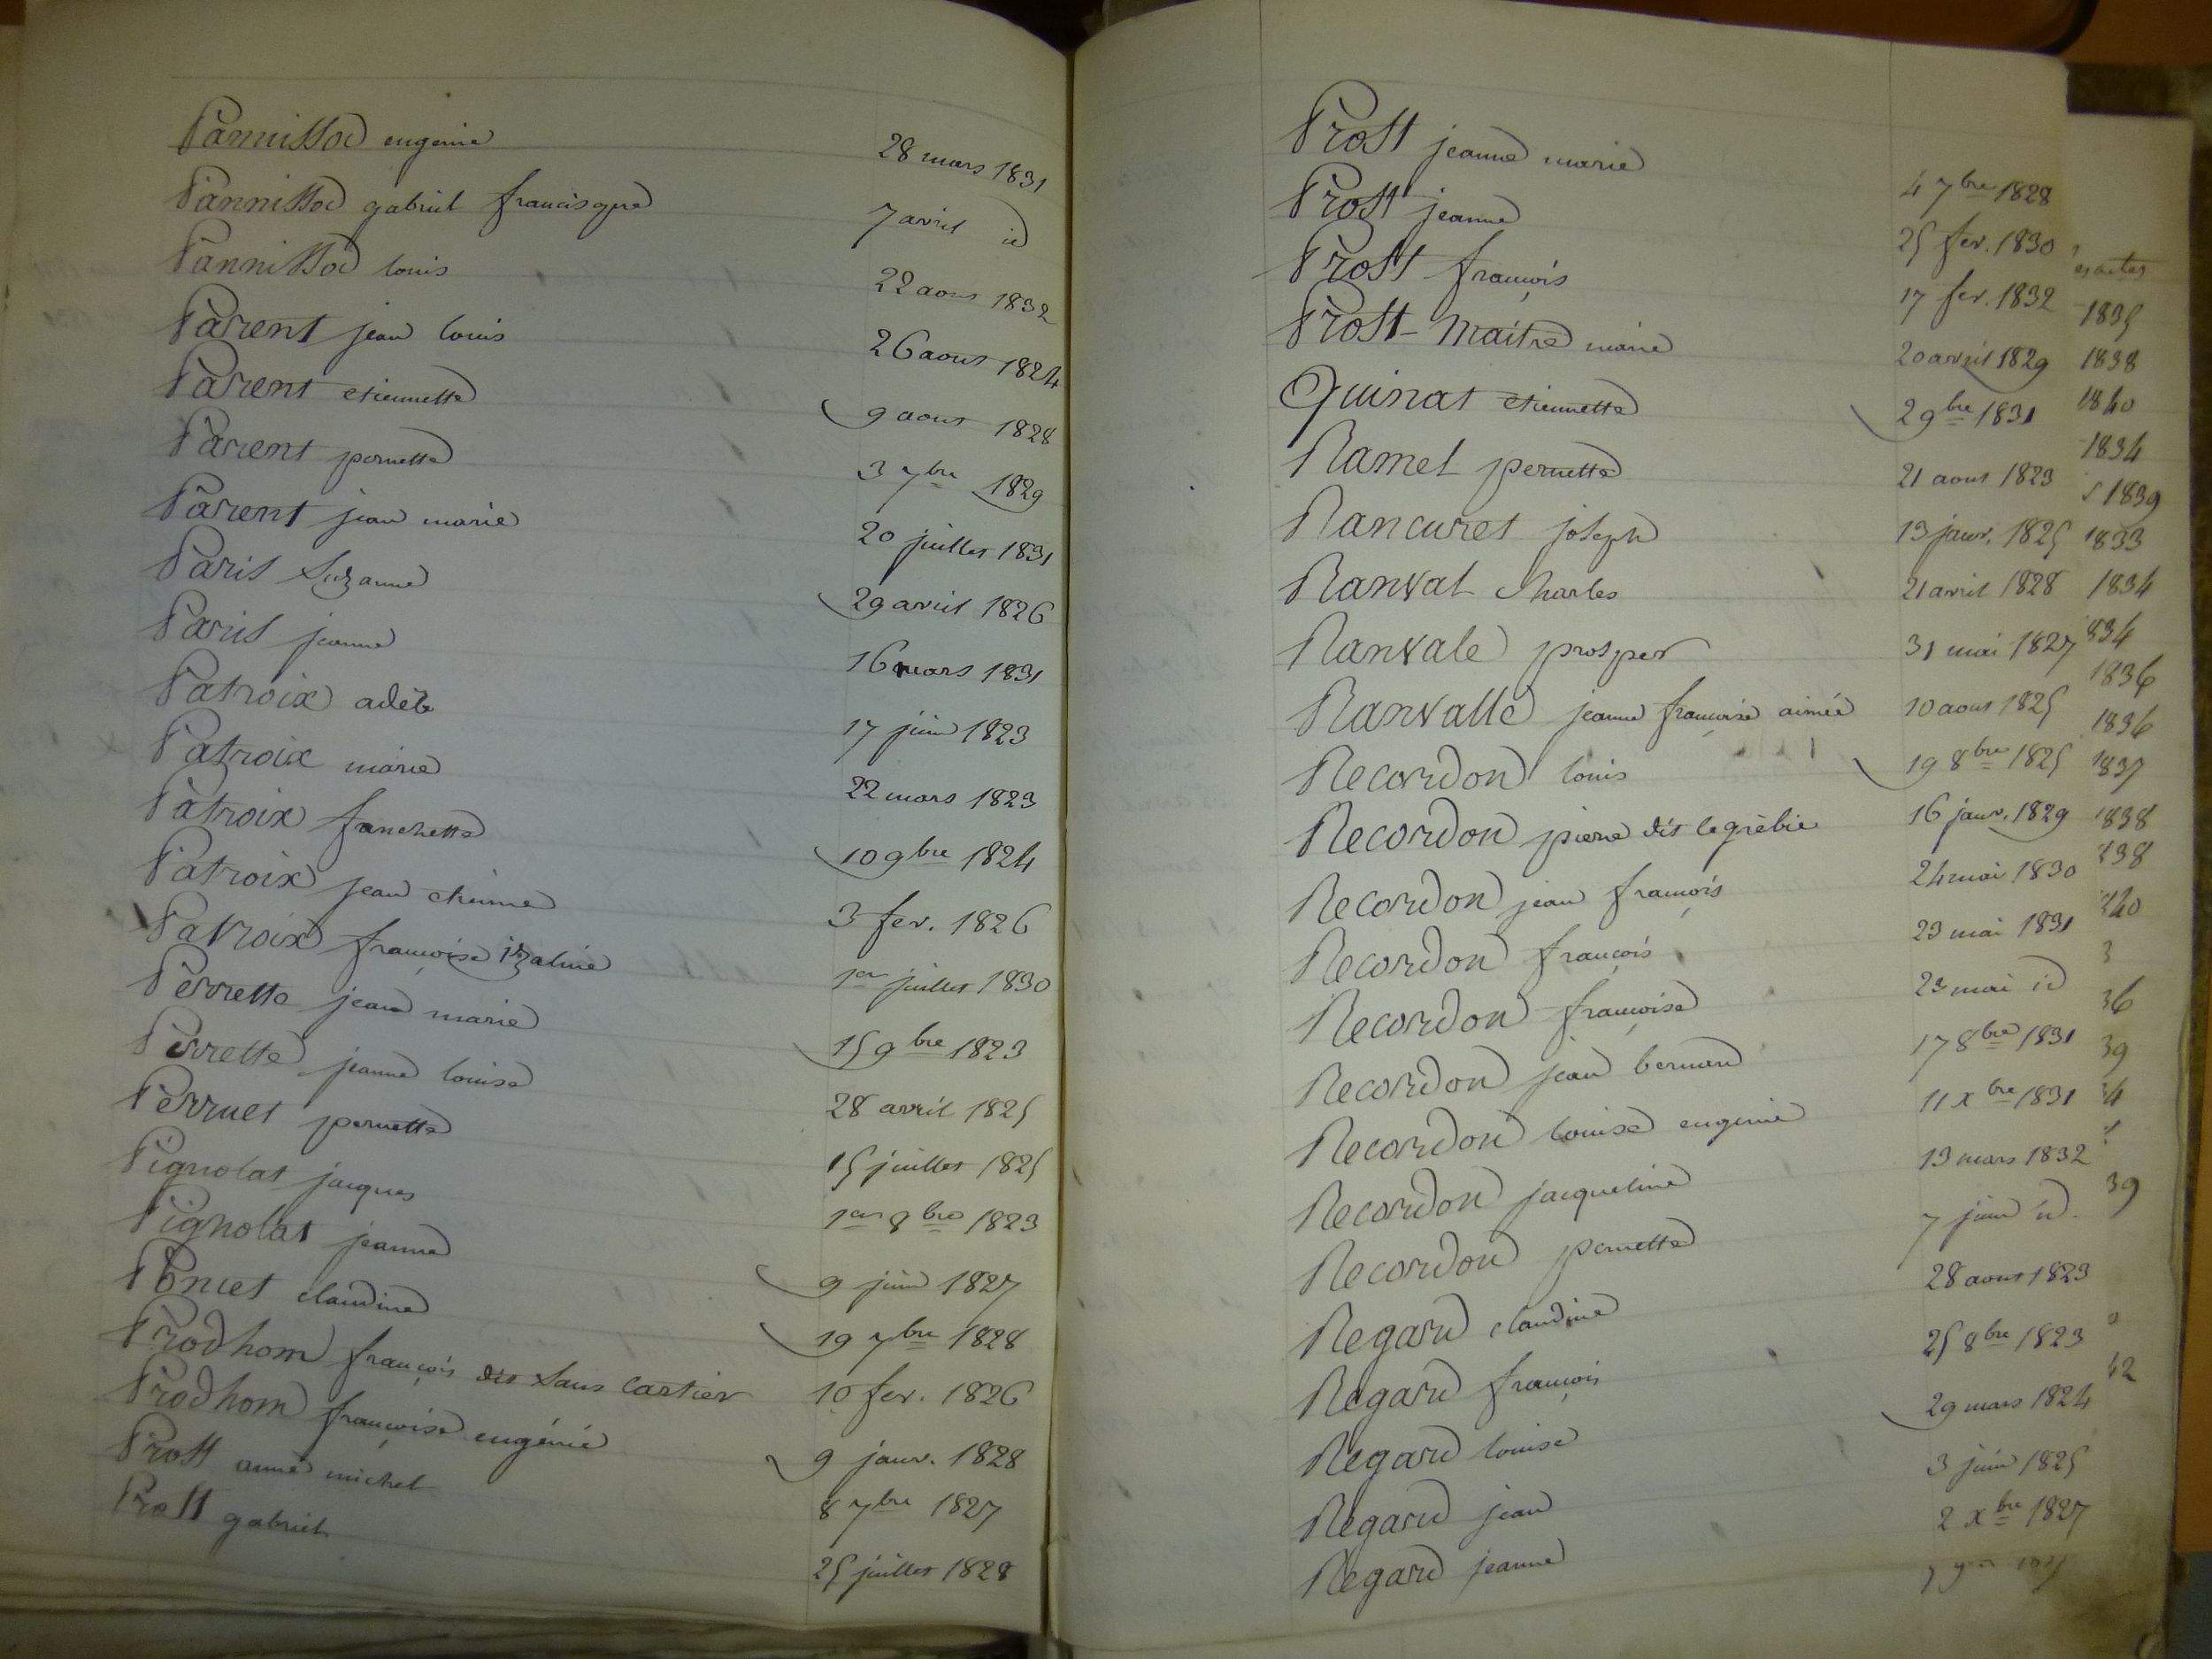 Pannissod eugenie 28 mars 1831
Pannissod gabriel francisque 7 avril id
Pannissod louis 22 aout 1832
Parent jean louis 26 aout 1824
Parent etiennette 9 aout 1828
Parent pernette 3 7bre 1829
Parent jean marie 20 juillet 1831
Paris Suzanne 29 avril 1826
Paris jeanne 16 mars 1831
Patroix adèle 17 juin 1823
Patroix marie 22 mars 1823
Patroix fanchette 10 9bre 1824
Patroix jean etienne 3 fev. 1826
Patroix françoise izaline 1er juillet 1830
Perrette jean marie 15 9bre 1823
Perrette jeanne louise 28 avril 1825
Perruet pernette 15 juillet 1825
Pignolat jacques 1er 8bre 1823
Pignolat jeanne 9 juin 1827
Poncet claudine 19 7bre 1828
Prodhom françois dit Sans Cartier 10 fev. 1826
Prodhom françoise eugénie 9 janv. 1828
Prost anne michel 8 7bre 1827
Prost gabriel 25 juillet 1828
Prost jeanne marie 4 7bre 1828
Prost jeanne 25 fev. 1830
Prost françois 17 fev. 1832
Prost-Maitre marie 20 avril 1829
Quinat etiennette 2 9bre 1831
Ramel pernette 21 aout 1823
Rancuret joseph 13 janv. 1825
Ranval Charles 21 avril 1828
Ranvale prosper 31 mai 1827
Ranvalle jeanne françoise aimée 10 aout 1825
Recordon louis 19 8bre 1825
Recordon pierre dit legrebie 16 janv. 1829
Recordon jean françois 24 mai 1830
Recordon françois 23 mai 1831
Recordon françoise 23 mai id
Recordon jean bernard 17 8bre 1831
Recordon louise eugenie 11 xbre 1831
Recordon jacqueline 13 mars 1832
Recordon pernette 7 juin id.
Regard claudine 28 aout 1823
Regard françois 25 8bre 1823
Regard louise 29 mars 1824
Regard jean 3 juin 1825
Regard jeanne 2 xbre 1827
1835
1838
1840
1834
1839
1833
1834
834
1836
1836
1837
1838
838
840
3
36
39
4
39
42